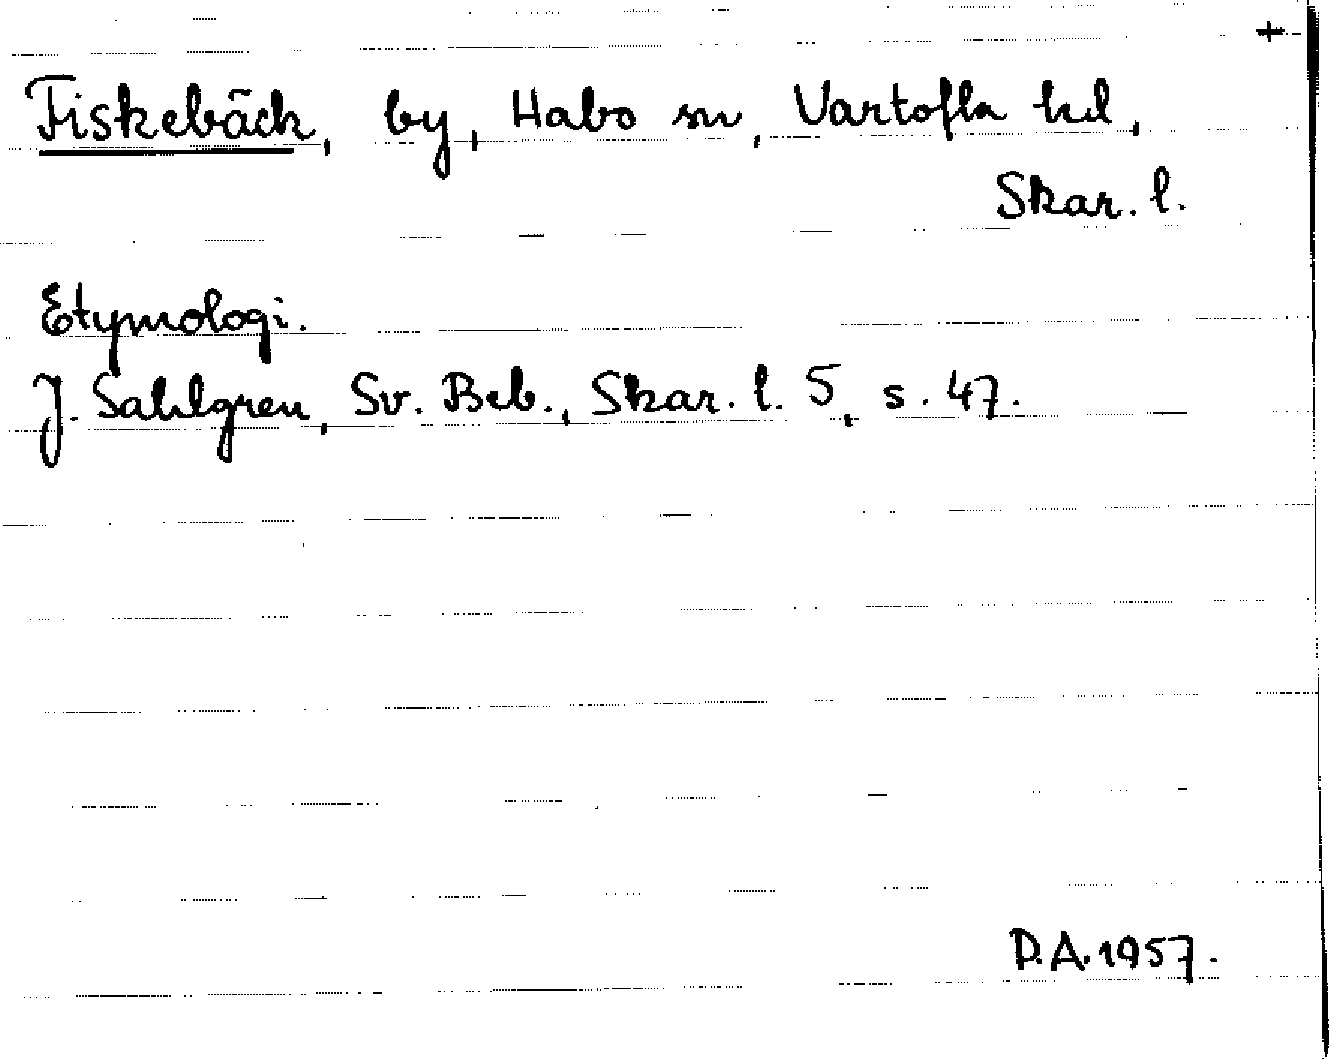 +
Fiskebäck, by, Habo sn, Vartofta hd,
Skar. l.
Etymologi.
J. Sahlgren, Sv. Beb., Skar. l. 5, s. 47.
D.A. 1957.